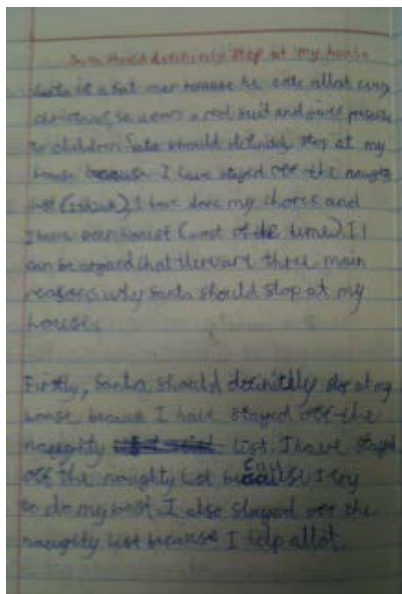 Santa should definitely stop at my house
Santa is a fat man because he eats allot every
christmas, he wears a red suit and gives presents
to children. Santa should definitely stop at my
house because I have stayed off the naughty
list (I think), I have done my chores and
I have been honest (most of the time). It
can be argued that there are three main
reasons why Santa should stop at my
house.
Firstly, Santa should definitely stop at my
house because I have stayed off the
naughty list. I have stayed
off the naughty list because I try
to do my best. I also stayed off the
naughty list because I help allot.